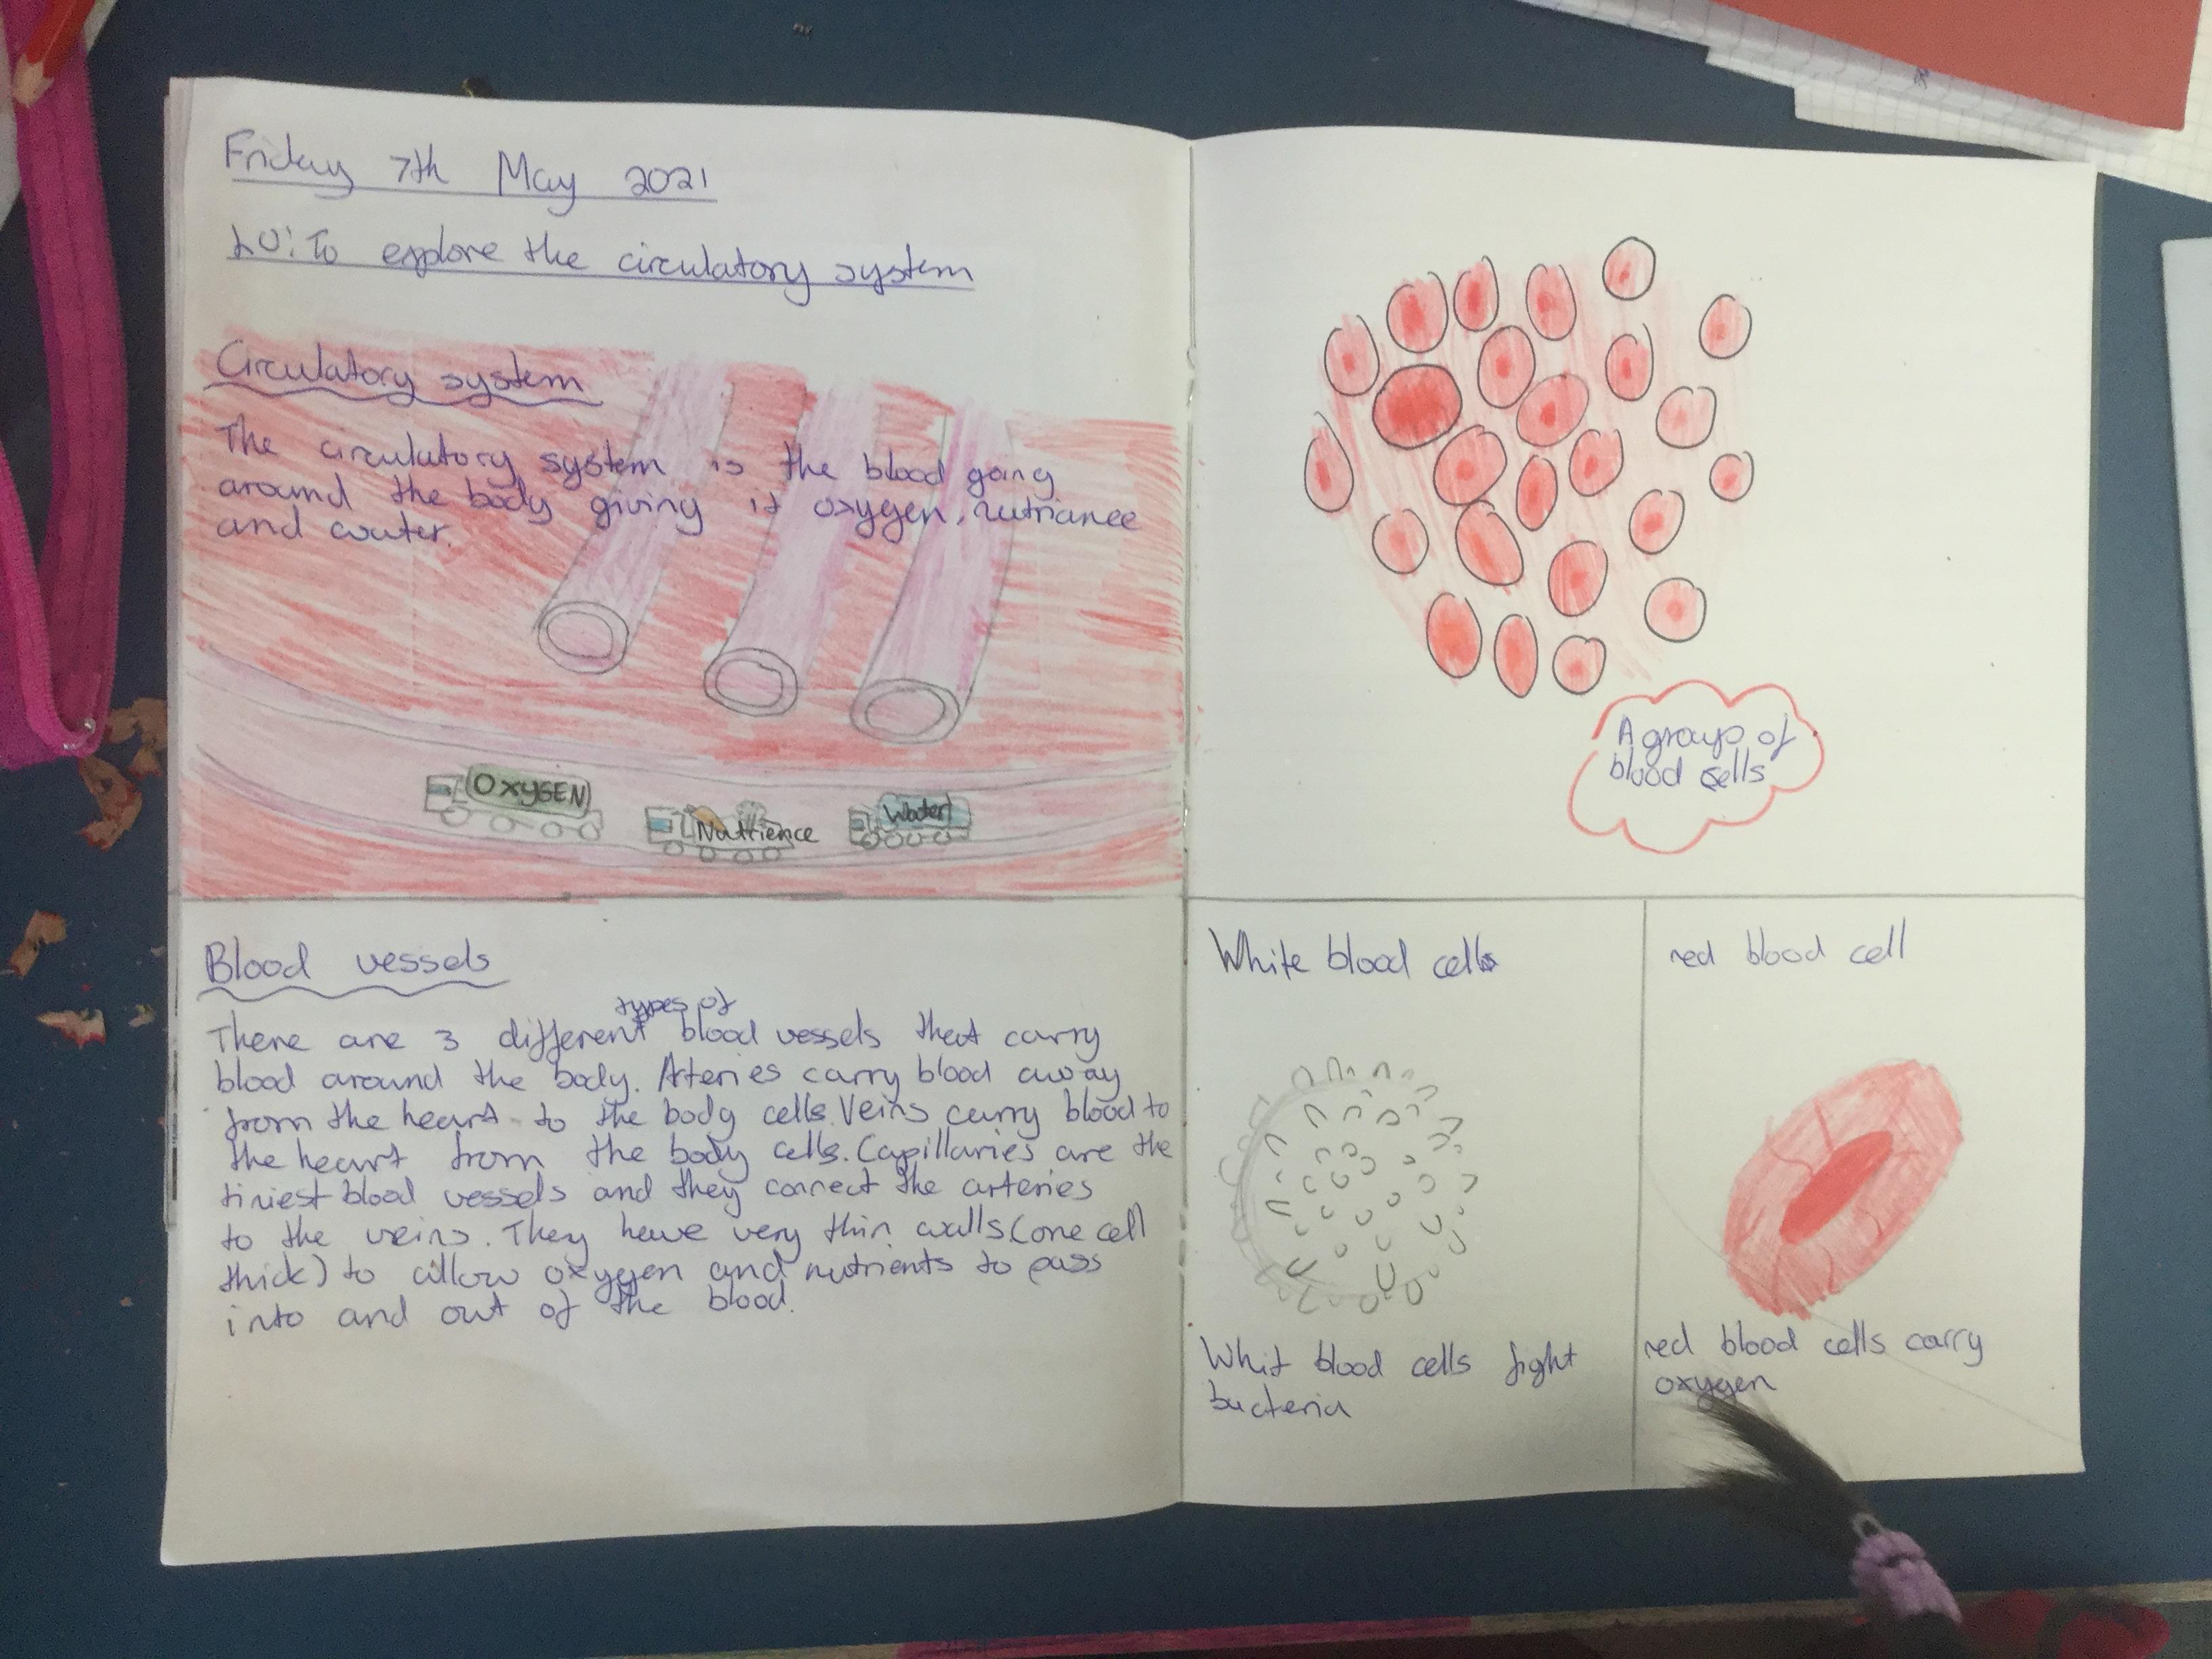 Friday 7th May 2021
LO: To explore the circulatory system
Circulatory system
The circulatory system is the blood going
around the body giving it oxygen, nutrianee
and water.
OXYGEN
Nutrience
Water
Blood vessels
There are 3 different types of blood vessels that carry
blood around the body. Arteries carry blood away
from the heart to the body cells. Veins carry blood to
the heart from the body cells. Capillaries are the
tiniest blood vessels and they connect the arteries
to the veins. They have very thin walls (one cell
thick) to allow oxygen and nutrients to pass
into and out of the blood.
A group of
blood cells
White blood cells
Whit blood cells fight
bacteria
red blood cell
red blood cells carry
oxygen